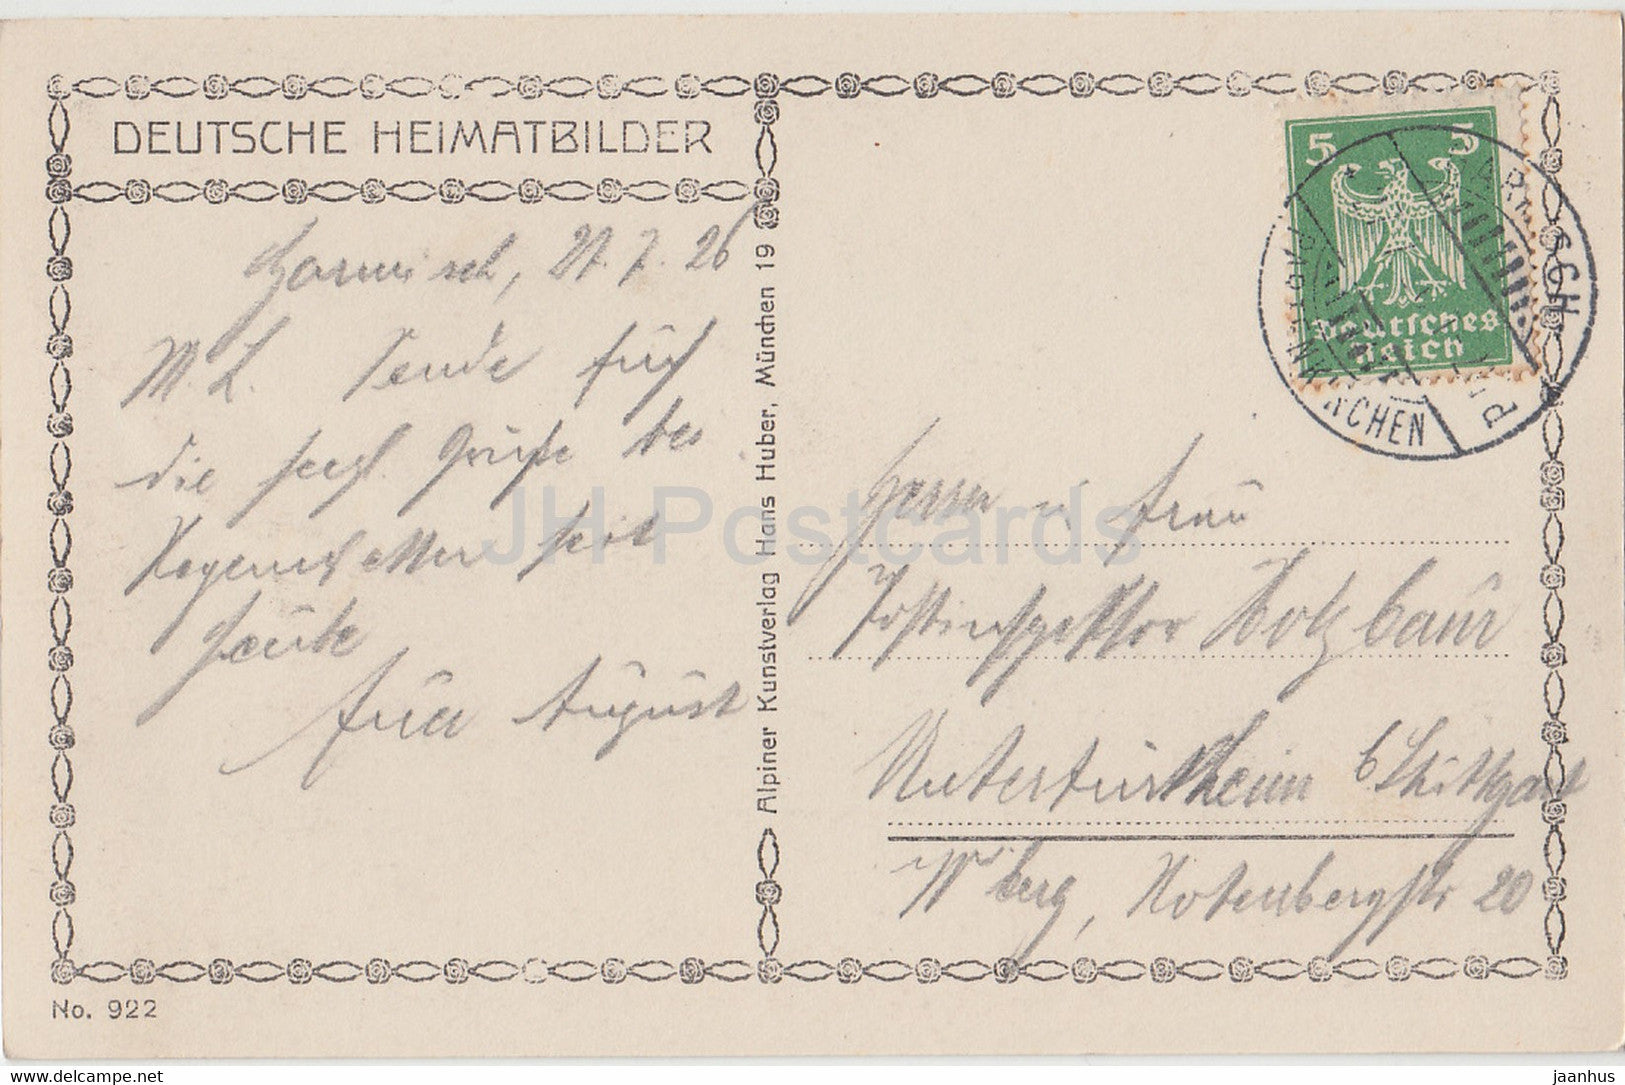 DEUTSCHE HEIMATBILDER
Garmisch, 27.7.26
M. L. Sende Euch
die herzl. Grüße bei
Regenwetter seit
heute
Euer August
Alpiner Kunstverlag Hans Huber, München 19
5 5
Deutsches
Reich
GARMISCH
PARTENKIRCHEN
Herrn u Frau
Postinspektor Holzbaur
Untertürkheim b Stuttgart
Wberg, Rotenbergstr 20
No. 922
JH Postcards
www.delcampe.net
jaanhus